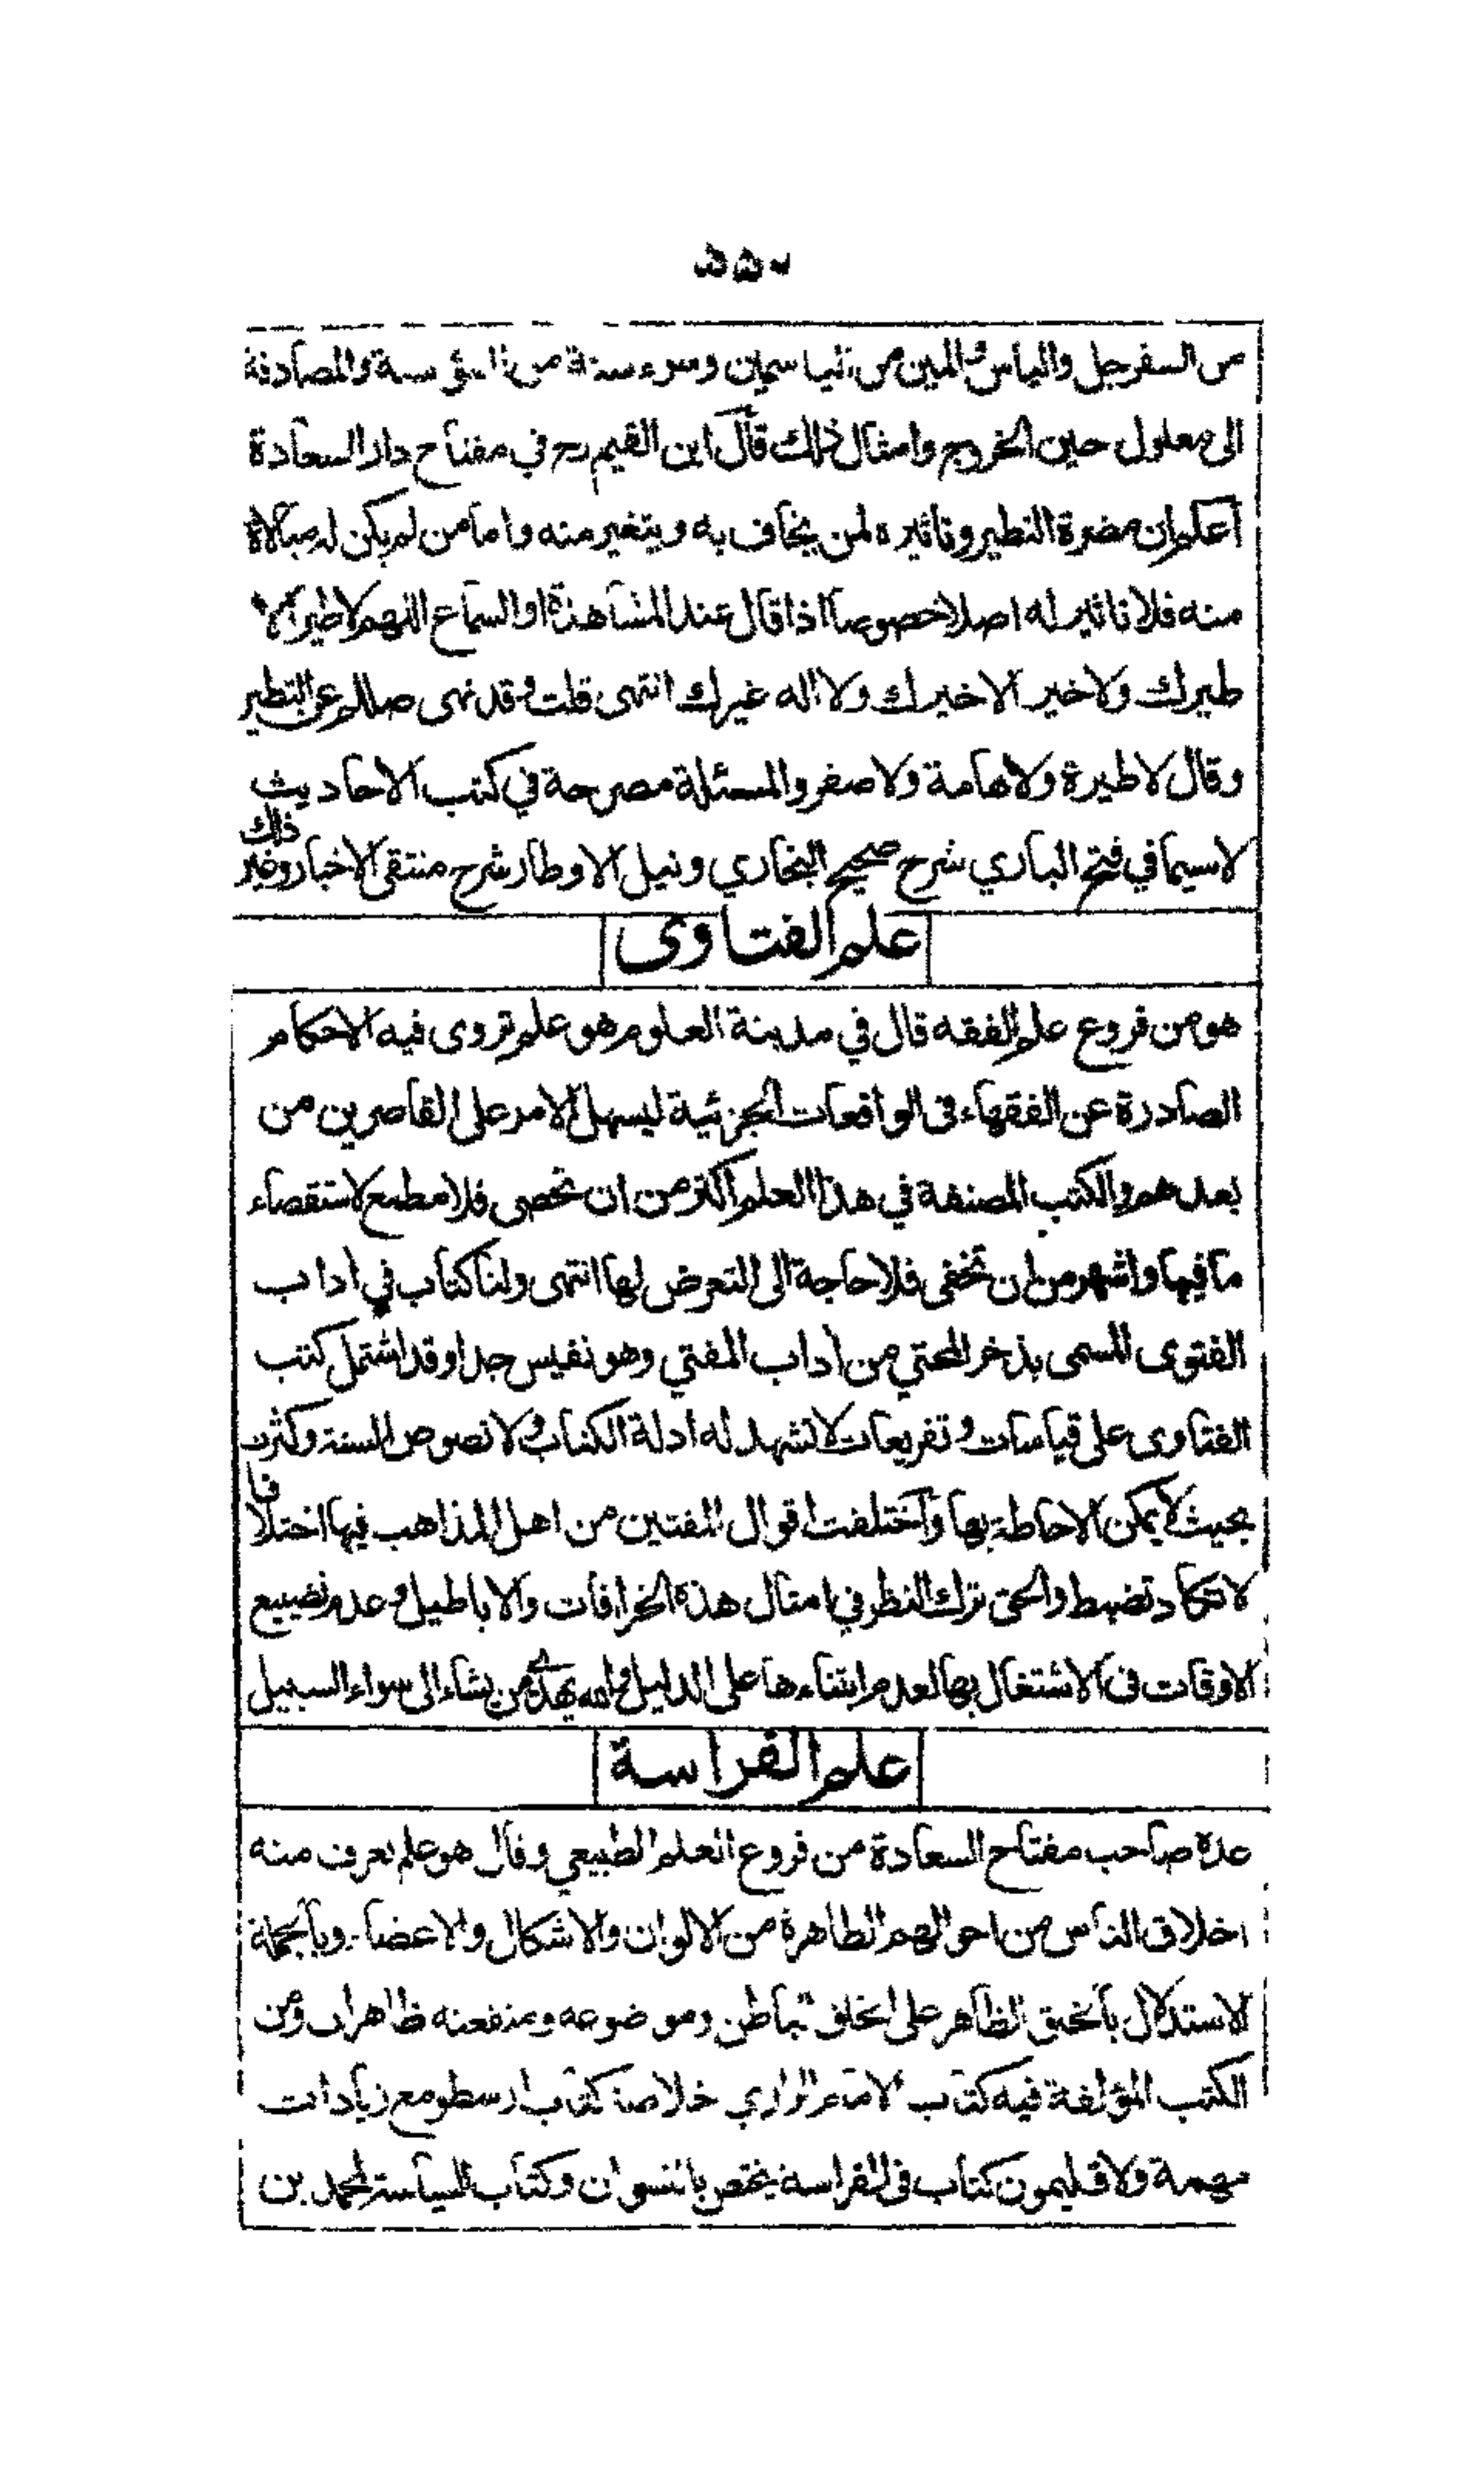 ۵۵۰
من السفرجل والياس والمين من الياسمين وسوء سنة من السوسنة والمصادفة
الى معلول حين الخروج وامثال ذلك قال ابن القيم رح في مفتاح دار السعادة
اعلم ان مضرة التطير وتاثيره لمن يخاف به ويتغير منه واما من لم يكن له مبالاة
منه فلا تاثير له اصلا خصوصا اذا قال عند المشاهدة او السماع اللهم لا طير الا
طيرك ولا خير الا خيرك ولا اله غيرك انتهى قلت وقد نهى صللم عن التطير
وقال لا طيرة ولا هامة ولا صفر والمسئلة مصرحة في كتب الاحاديث
لا سيما في فتح الباري شرح صحيح البخاري ونيل الاوطار شرح منتقى الاخبار وغير ذلك
علم الفتاوى
هو من فروع علم الفقه قال في مدينة العلوم هو علم تروى فيه الاحكام
الصادرة عن الفقهاء فى الواقعات الجزئية ليسهل الامر على القاصرين من
بعدهم والكتب المصنفة في هذا العلم اكثر من ان تحصى فلا مطمع لاستقصاء
ما فيها واشهر من ان تخفى فلا حاجة الى التعرض لها انتهى ولنا كتاب في اداب
الفتوى المسمى بذخر المحتي من اداب المفتي وهو نفيس جدا وقد اشتمل كتب
الفتاوى على قياسات وتفريعات لا تشهد له ادلة الكتاب ولا نصوص السنة وكثرت
بحيث لا يمكن الاحاطة بها واختلفت اقوال المفتين من اهل المذاهب فيها اختلافا
لا تكاد تضبط والحق ترك النظر في امثال هذه الخرافات والاباطيل وعدم تضييع
الاوقات فى الاشتغال بها لعدم ابتناءها على الدليل والله يهدي من يشاء الى سواء السبيل
علم الفراسة
عده صاحب مفتاح السعادة من فروع العلم الطبيعي وقال هو علم تعرف منه
اخلاق الناس من احوالهم الظاهرة من الالوان والاشكال والاعضاء وبالجملة
الاستدلال بالخلق الظاهر على الخلق الباطن وموضوعه ومنفعته ظاهران ومن
الكتب المؤلفة فيه كتاب الامام الرازي خلاصة كتاب ارسطو مع زيادات
مهمة ولاقليمون كتاب فى الفراسة يختص بالنسوان وكتاب السياسة لمحمد بن